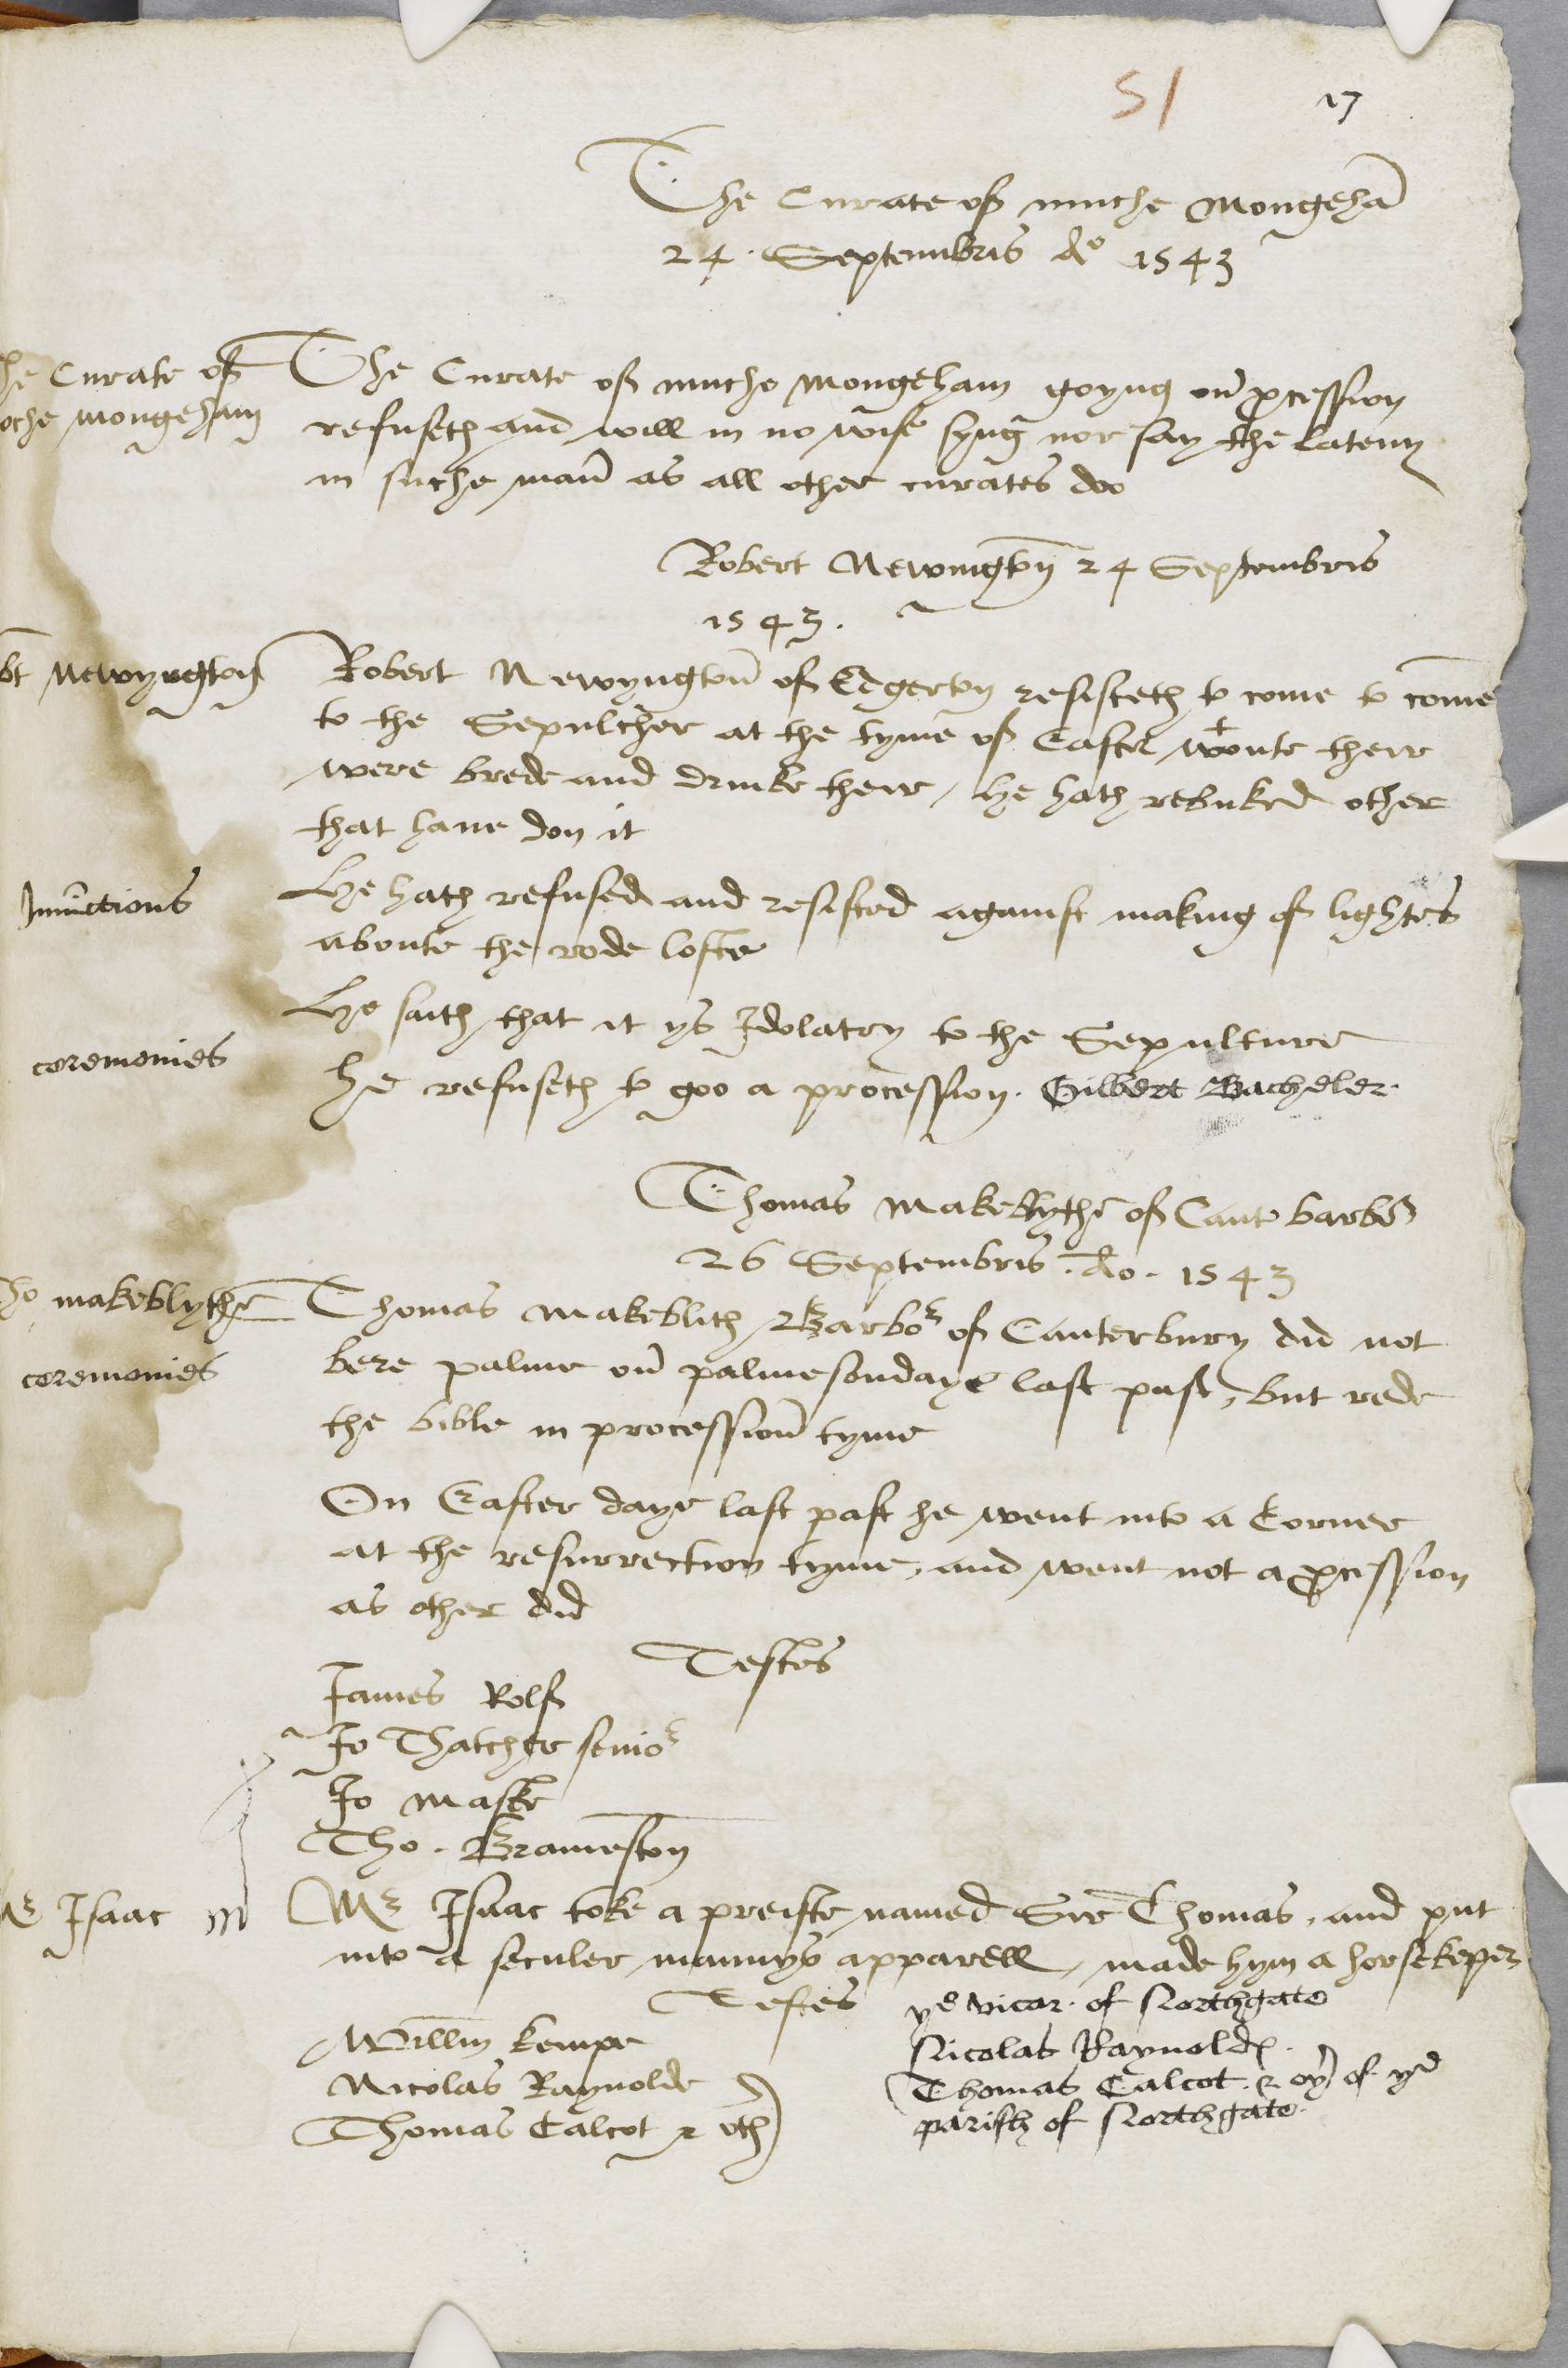 51 17
The Curate of muche Mongehā
24. Septembris Ao 1543
he Curate of
oche Mongeham
The Curate of muche Mongeham goyng on pcession
refuseth and will in no wise syng nor say the lateny
in suche mañ as all other curates doo
Robert Newington 24 Septembris
1543.
bt Newyngton
Robert Newyngton of Egerton resisteth to come to come
to the Sepulcher at the tyme of Easter wonte their
were brede and drinke their, he hath rebuked other
that haue don it
Iniūctions
He hath refused and resisted against making of lightes
aboute the rode lofte
He saith that it ys Idolatry to the Sepulture
ceremonies
he refuseth to goo a procession. Gilbert Bacheler.
Thomas Makeblythe of Cant barbor
26 Septembris. Ao. 1543
ho makeblythe
ceremonies
Thomas Makeblith Barbor of Canterbury did not
bere palme on palmesondaye last past, but rede
the bible in procession tyme
On Easter daye last past he went into a Corner
at the resurrection tyme, and went not a pcession
as other did
Testes
James Rolf
Jo Thatcher senior
Jo Maske
Tho. Brameston
Mr Isaac
Mr Isaac toke a preiste named Sir Thomas, and put
into a seculer mannys apparell, made hym a horsekeper
Testes
Willm kempe
Nicolas Raynolde
Thomas Calcot & oth
ye vicar of Northgate
Nicolas Raynold.
Thomas Calcot. & oy of ye
parish of Northgate.